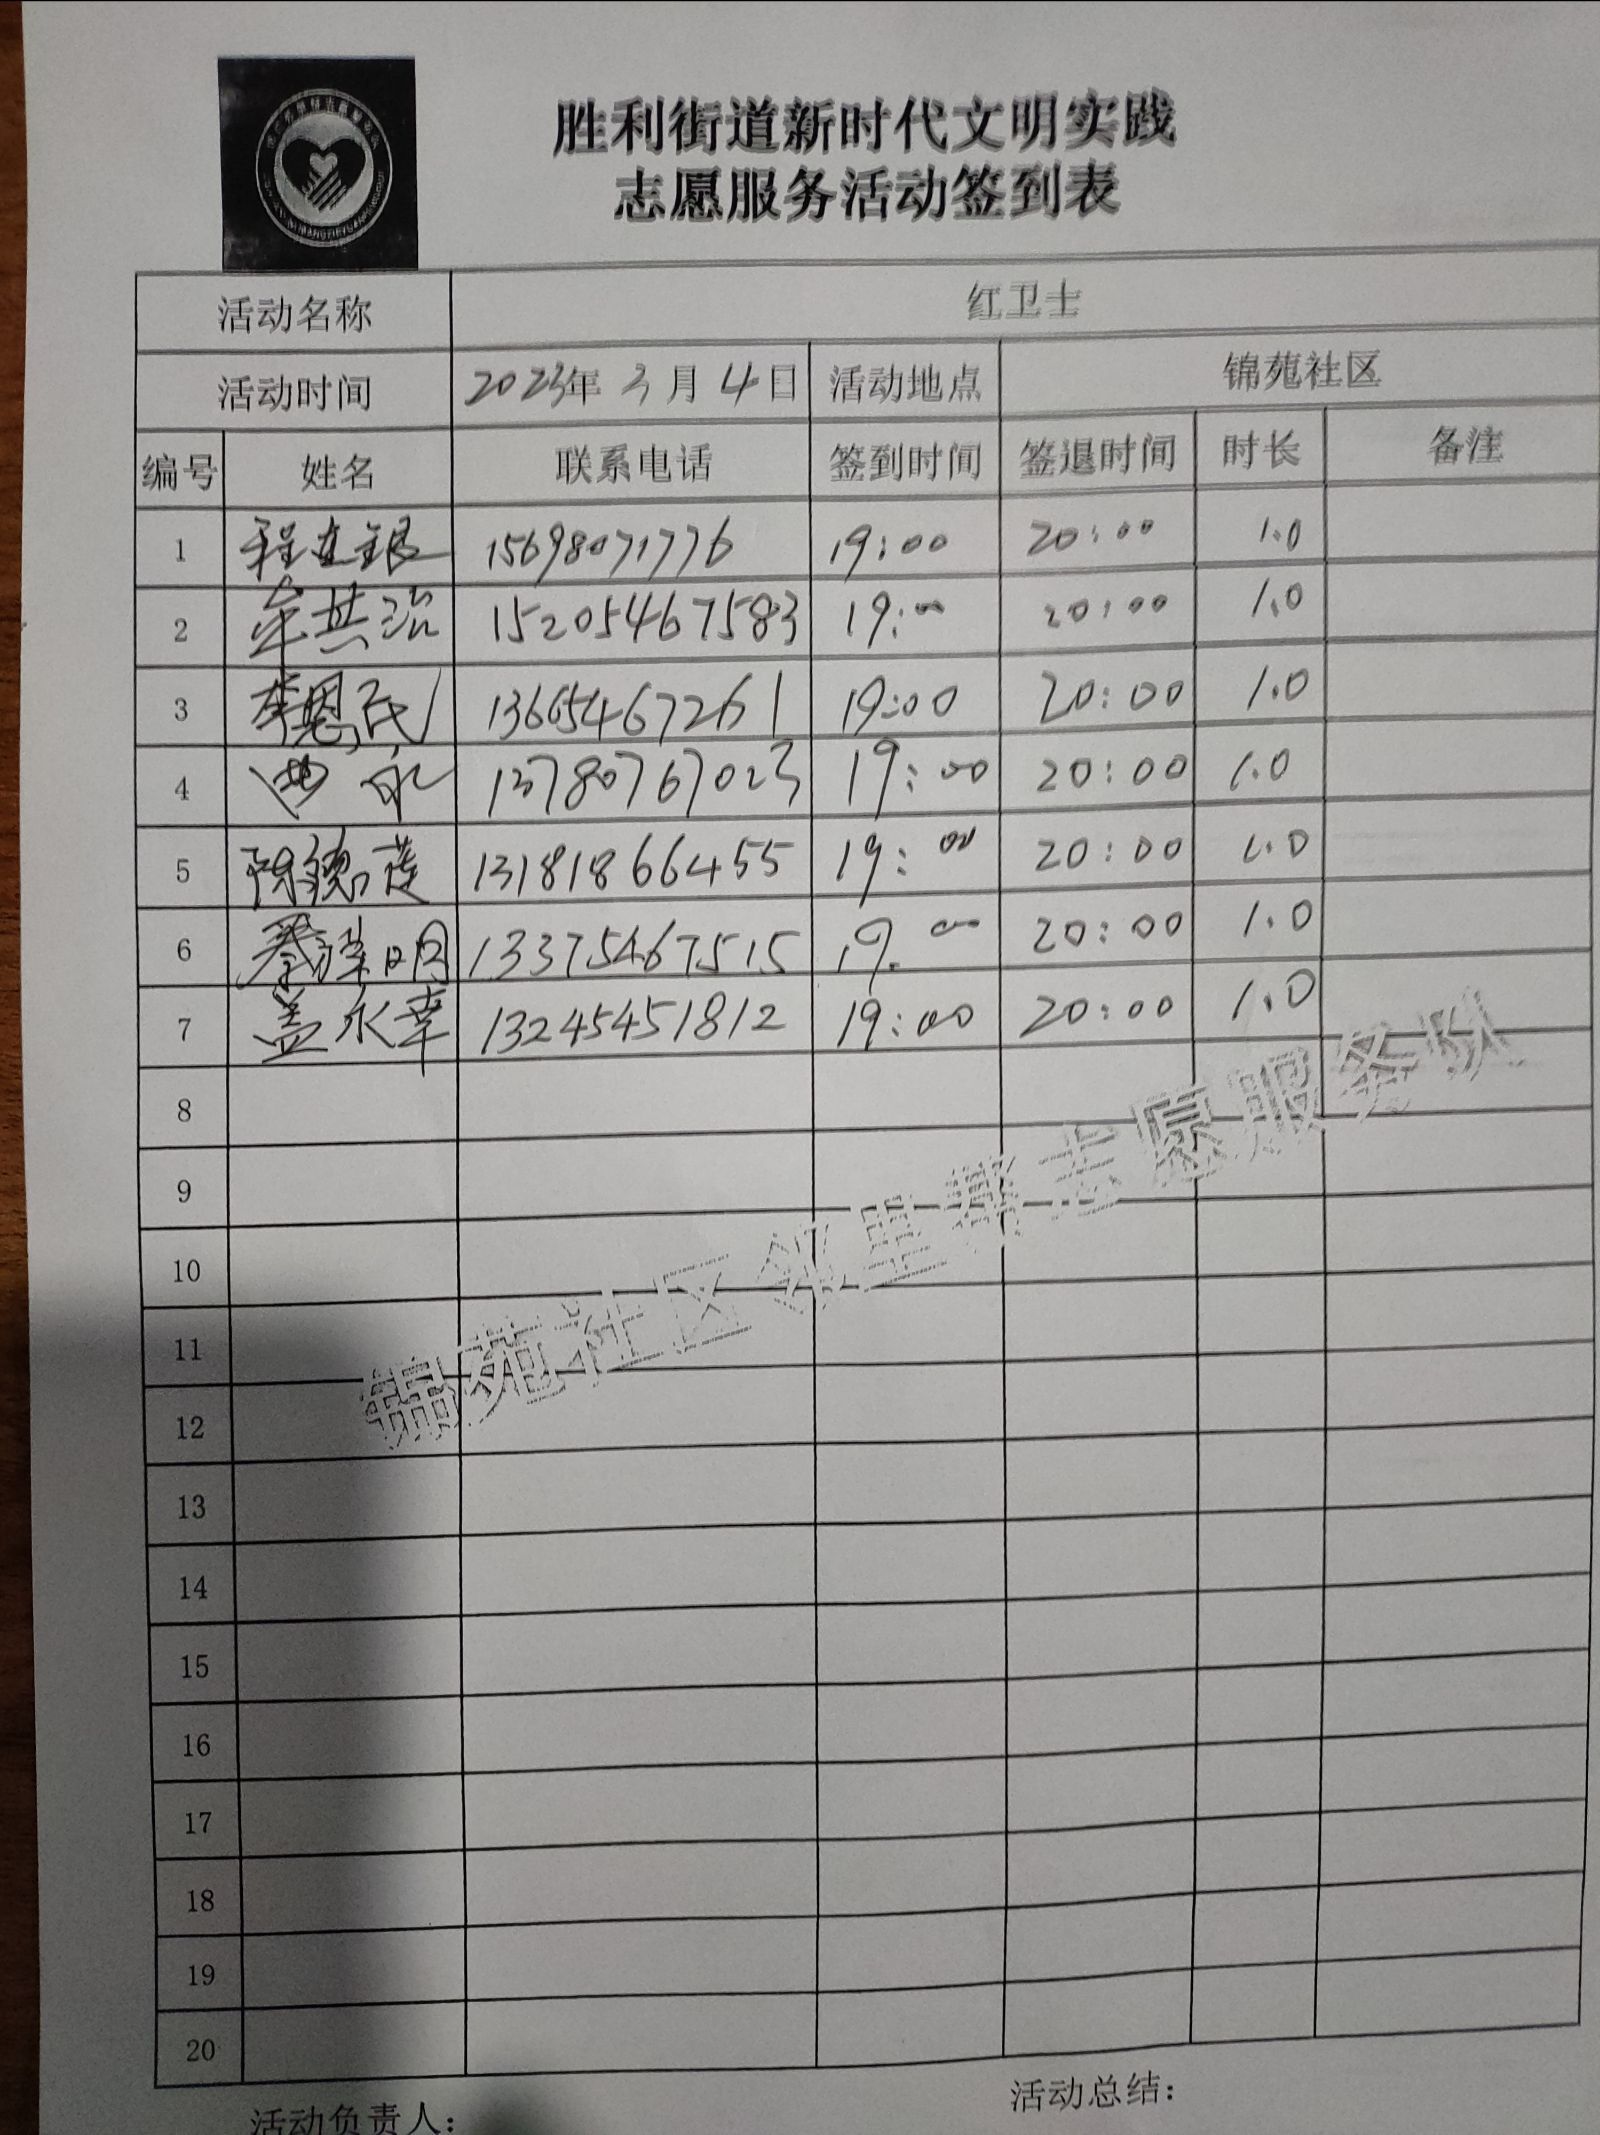 胜利街道新时代文明实践
志愿服务活动签到表
活动名称 红卫士
活动时间 2023年3月4日 活动地点 锦苑社区
编号 姓名 联系电话 签到时间 签退时间 时长 备注
1 程立银 15698071776 19:00 20:00 1.0
2 牟其治 15205467583 19:00 20:00 1.0
3 李恩民 13665467261 19:00 20:00 1.0
4 13780767023 19:00 20:00 1.0
5 陈德莲 13181866455 19:00 20:00 1.0
6 明 13375467515 19:00 20:00 1.0
7 盖永幸 13245451812 19:00 20:00 1.0
8
9
10
11
12
13
14
15
16
17
18
19
20
锦苑社区邻里帮志愿服务队
活动负责人：
活动总结：